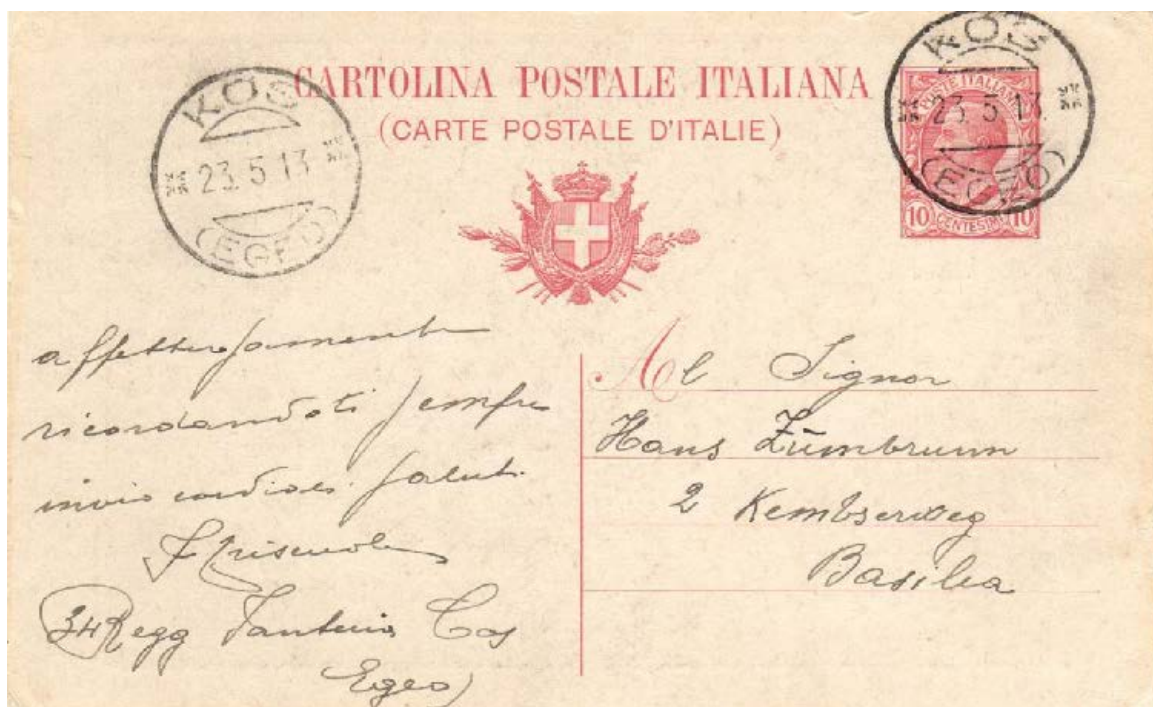 CARTOLINA POSTALE ITALIANA
(CARTE POSTALE D'ITALIE)
KOS
23.5.13
(EGEO)
KOS
23.5.13
(EGEO)
POSTE ITALIANE
10 CENTESIMI 10
affettuosamente
ricordandoti sempre
invio cordiali saluti
34 Regg Fanteria Cos
Egeo)
Al Signor
Hans Zumbrunn
2 Kembserweg
Basilea